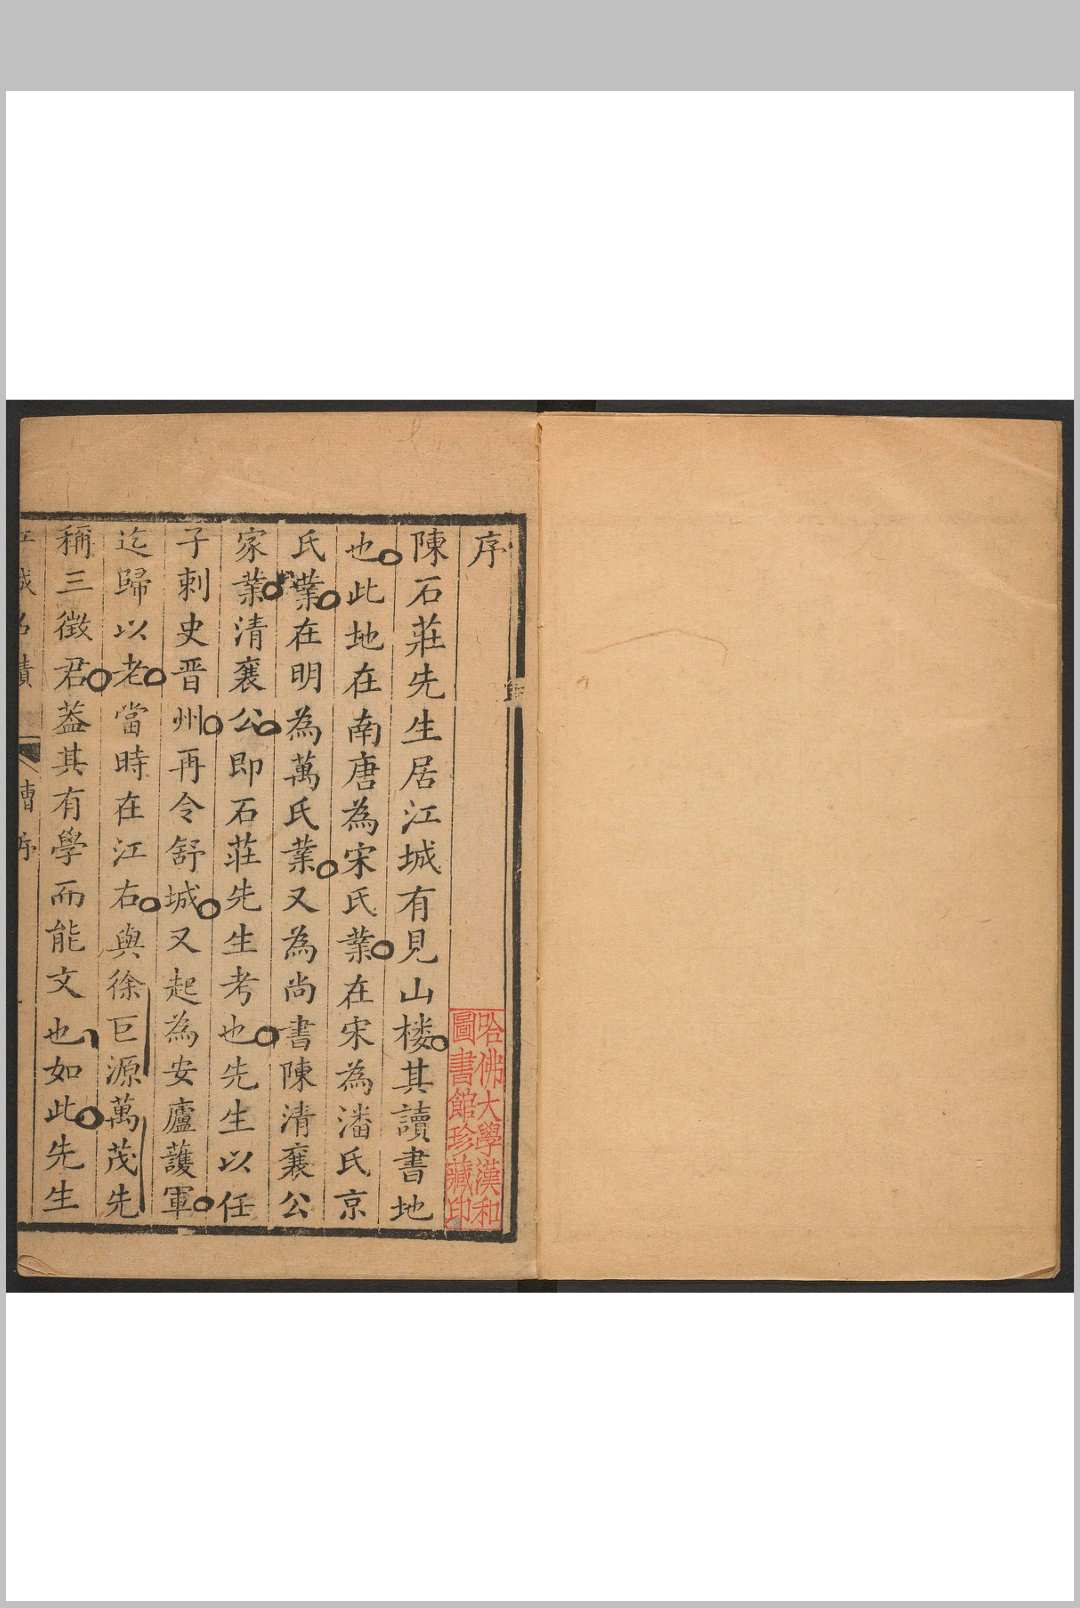 序
陳石莊先生居江城有見山楼其讀書地
也此地在南唐為宋氏業在宋為潘氏京
氏業在明為萬氏業又為尚書陳清襄公
家業清襄公即石莊先生考也先生以任
子刺史晋州再令舒城又起為安廬護軍
迄歸以老當時在江右與徐巨源萬茂先
稱三徵君葢其有學而能文也如此先生
哈佛大學漢和
圖書館珍藏印